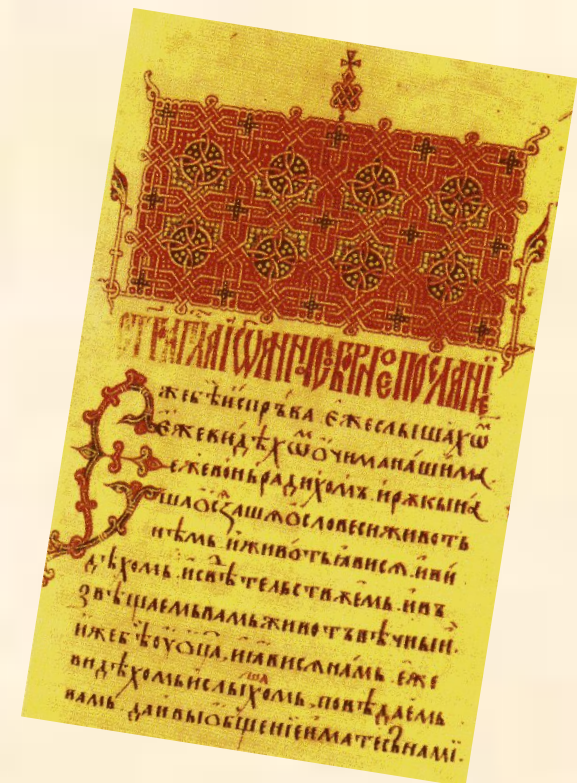 ст҃го ап҃ла іѡанна съборное посланїе
Еже бѣ испръва еже слышахѡ
еже видѣхѡ очима нашима
еже воньрадихомь. и рѫкы на
шѧ осѧзашѧ о словеси животь
нѣмь. и животь ꙗвисѧ. и ви
дѣхомь. и свѣтельствѫемь. и въ
звѣщаемь вамь животъ вѣчныи.
иже бѣ оу ѡц҃а, и ꙗвисѧ намь. еже
видѣхомь и слышахомь, повѣдаемь
вамь. да и вы обьщенїе имате сь нами.